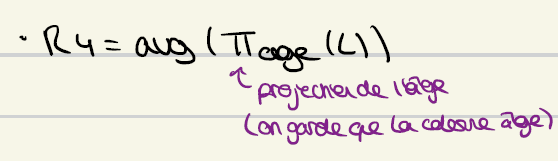 • R4 = avg (πage (L))
↑ projection de l'âge
(on garde que la colonne âge)